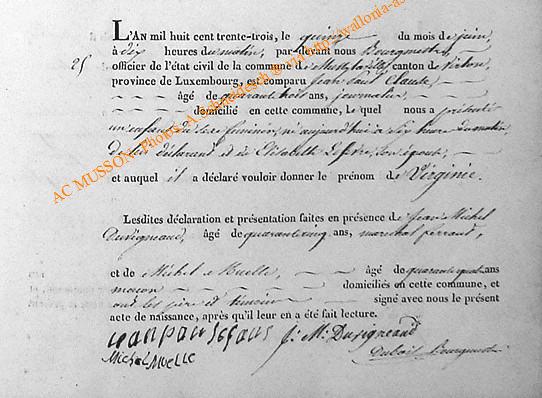 25
L'AN mil huit cent trente-trois, le quinze du mois de juin
à dix heures du matin, par-devant nous Bourgmestre
officier de l'état civil de la commune de canton de Virton,
province de Luxembourg, est comparu Jean Paul
âgé de quarante trois ans, journalier,
domicilié en cette commune, Lequel nous a présenté
un enfant du sexe féminin, né aujourd'hui à six heures du matin
de lui déclarant et de Elisabeth son épouse,
et auquel il a déclaré vouloir donner le prénom de Virginie.
Lesdites déclaration et présentation faites en présence de Jean Michel
Duvigneaud, âgé de quarante cinq ans, marechal ferrand,
et de Michel âgé de quarante quatre ans
macon domiciliés en cette commune, et
ont les père et témoins signé avec nous le présent
acte de naissance, après qu'il leur en a été fait lecture.
J. M. Duvigneaud
Michel
Dubois Bourgmestre
AC MUSSON. Photos: A.